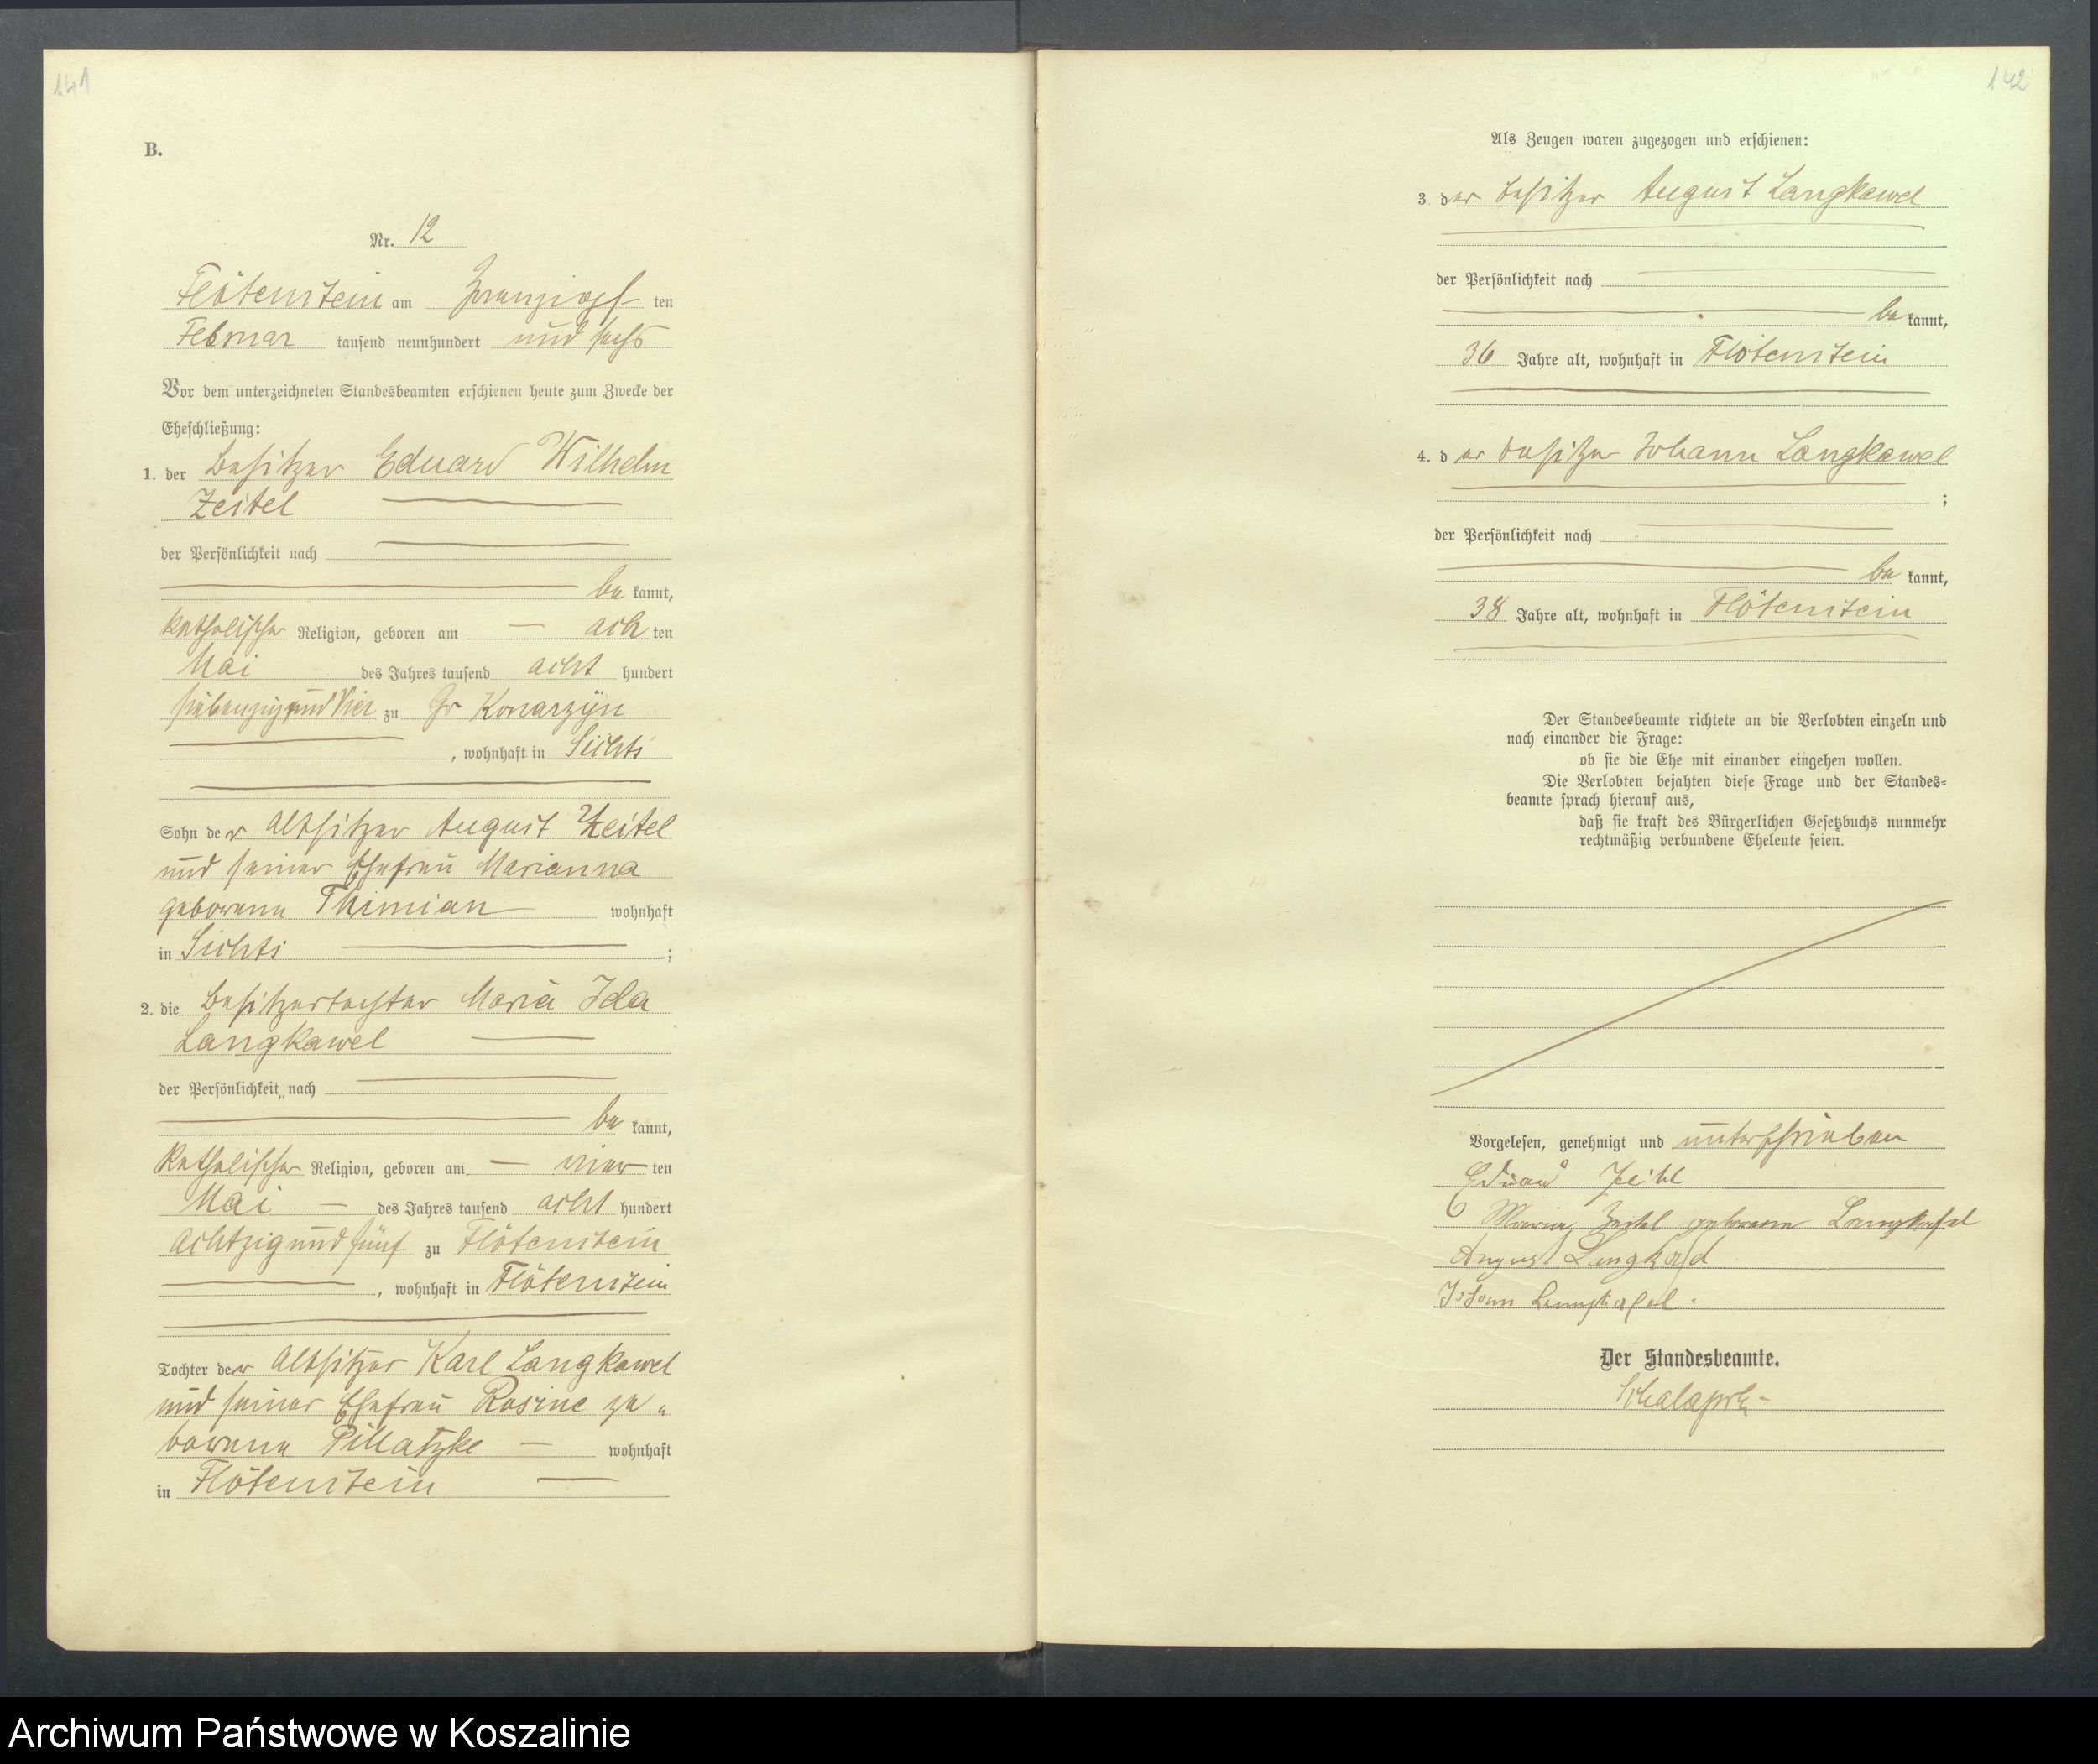 141
B.
Nr. 12
Flötenstein am zwanzigsten
Februar tausend neunhundert und sechs
Vor dem unterzeichneten Standesbeamten erschienen heute zum Zwecke der
Eheschließung:
1. der Besitzer Eduard Wilhelm
Zeitel
der Persönlichkeit nach
be kannt,
katholischer Religion, geboren am — ach ten
Mai des Jahres tausend acht hundert
siebenzig und Vier zu Gr Konarzyn
, wohnhaft in Sichts
Sohn der Altsitzer August Zeitel
und seiner Ehefrau Marianna
geborene Thimian wohnhaft
in Sichts ;
2. die Besitzertochter Maria Ida
Langkawel
der Persönlichkeit nach
be kannt,
katholischer Religion, geboren am — vier ten
Mai — des Jahres tausend acht hundert
Achtzig und fünf zu Flötenstein
, wohnhaft in Flötenstein
Tochter der Altsitzer Karl Langkawel
und seiner Ehefrau Rosine ge„
borene Pillatzke — wohnhaft
in Flötenstein —
142
Als Zeugen waren zugezogen und erschienen:
3. der Besitzer August Langkawel
der Persönlichkeit nach
be kannt,
36 Jahre alt, wohnhaft in Flötenstein
4. der Besitzer Johann Langkawel
;
der Persönlichkeit nach
be kannt,
38 Jahre alt, wohnhaft in Flötenstein
Der Standesbeamte richtete an die Verlobten einzeln und
nach einander die Frage:
ob sie die Ehe mit einander eingehen wollen.
Die Verlobten bejahten diese Frage und der Standes-
beamte sprach hierauf aus,
daß sie kraft des Bürgerlichen Gesetzbuchs nunmehr
rechtmäßig verbundene Eheleute seien.
Vorgelesen, genehmigt und unterschrieben
Eduard
Maria Zeitel geborene Langkafel
August
Johann Langkafel.
Der Standesbeamte.
Archiwum Państwowe w Koszalinie